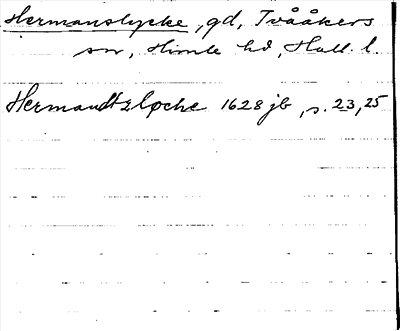 Hermanslycke, gd, Tvååkers
sn, Himle hd, Hall. l.
Hermandtzløcke 1628 jb, s. 23, 25